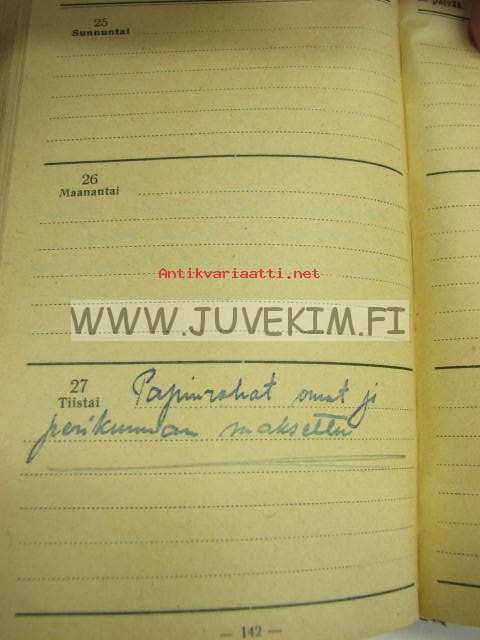 päivää.
25
Sunnuntai
26
Maanantai
Antikvariaatti.net
WWW.JUVEKIM.FI
27
Tiistai Papinrahat omat ja
perikunnan maksettu
— 142 —